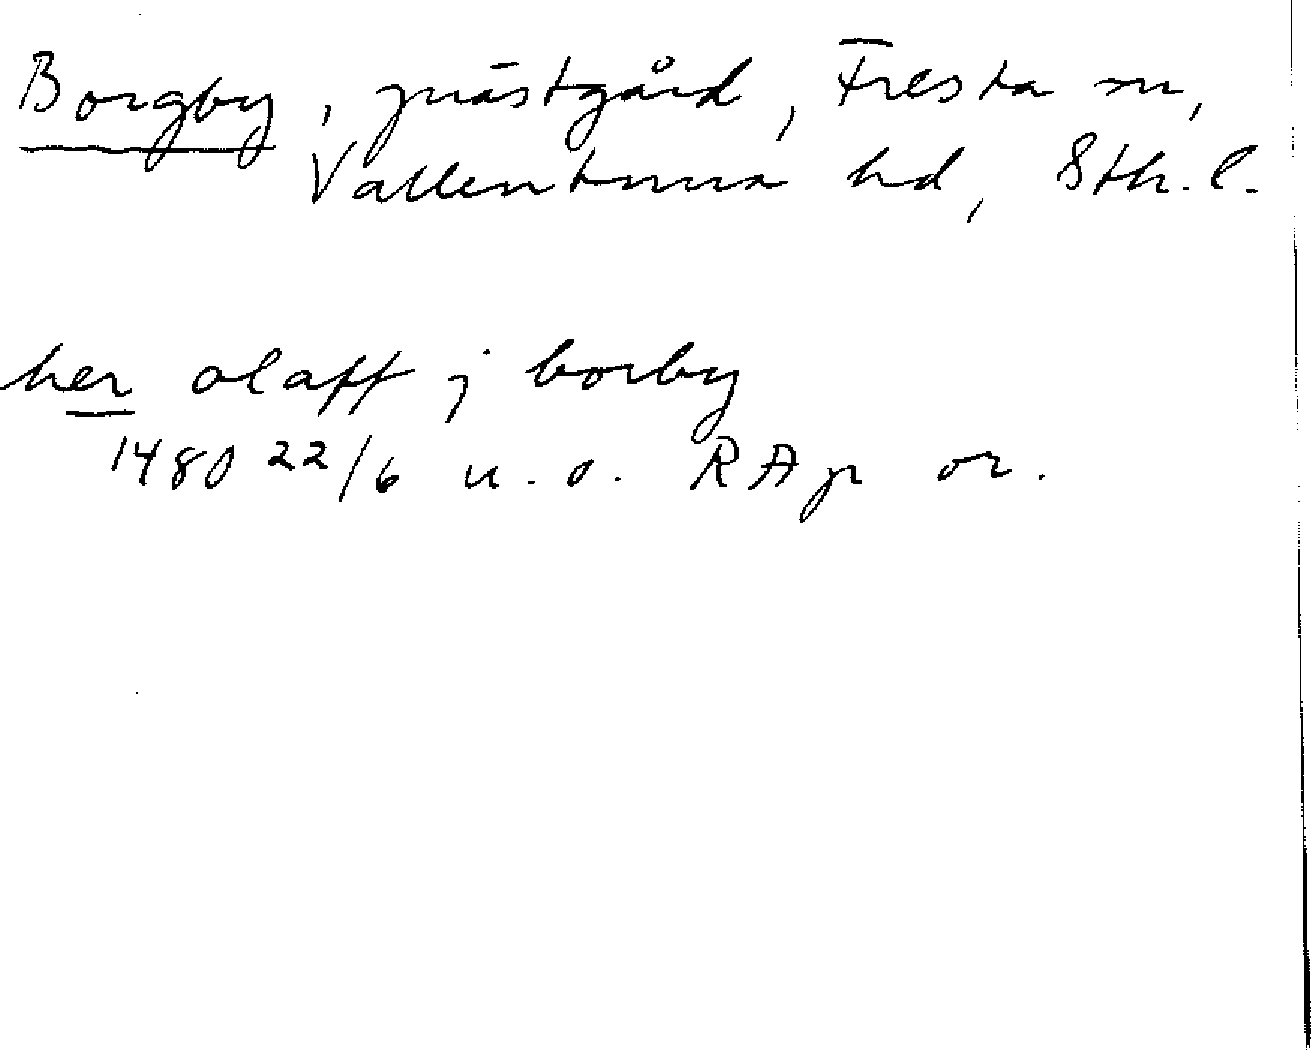 Borgby, prästgård, Fresta sn,
Vallentuna hd, Sth. l.
her olaff j borby
1480 22/6 u.o. RAp or.